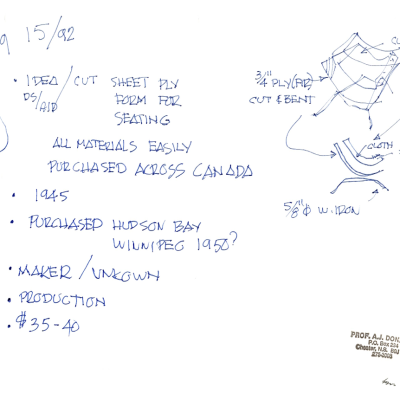 15/92
• IDEA/CUT SHEET PLY
DS/AID FORM FOR
SEATING
ALL MATERIALS EASILY
PURCHASED ACROSS CANADA
• 1945
• PURCHASED HUDSON BAY
WINNIPEG 1950?
• MAKER/UNKOWN
• PRODUCTION
• $35-40
3/4" PLY(FIR)
CUT & BENT
CLOTH
5/8"φ W. IRON
PROF. A.J. DON
P.O. Box 224
Chester, N.S. B0J